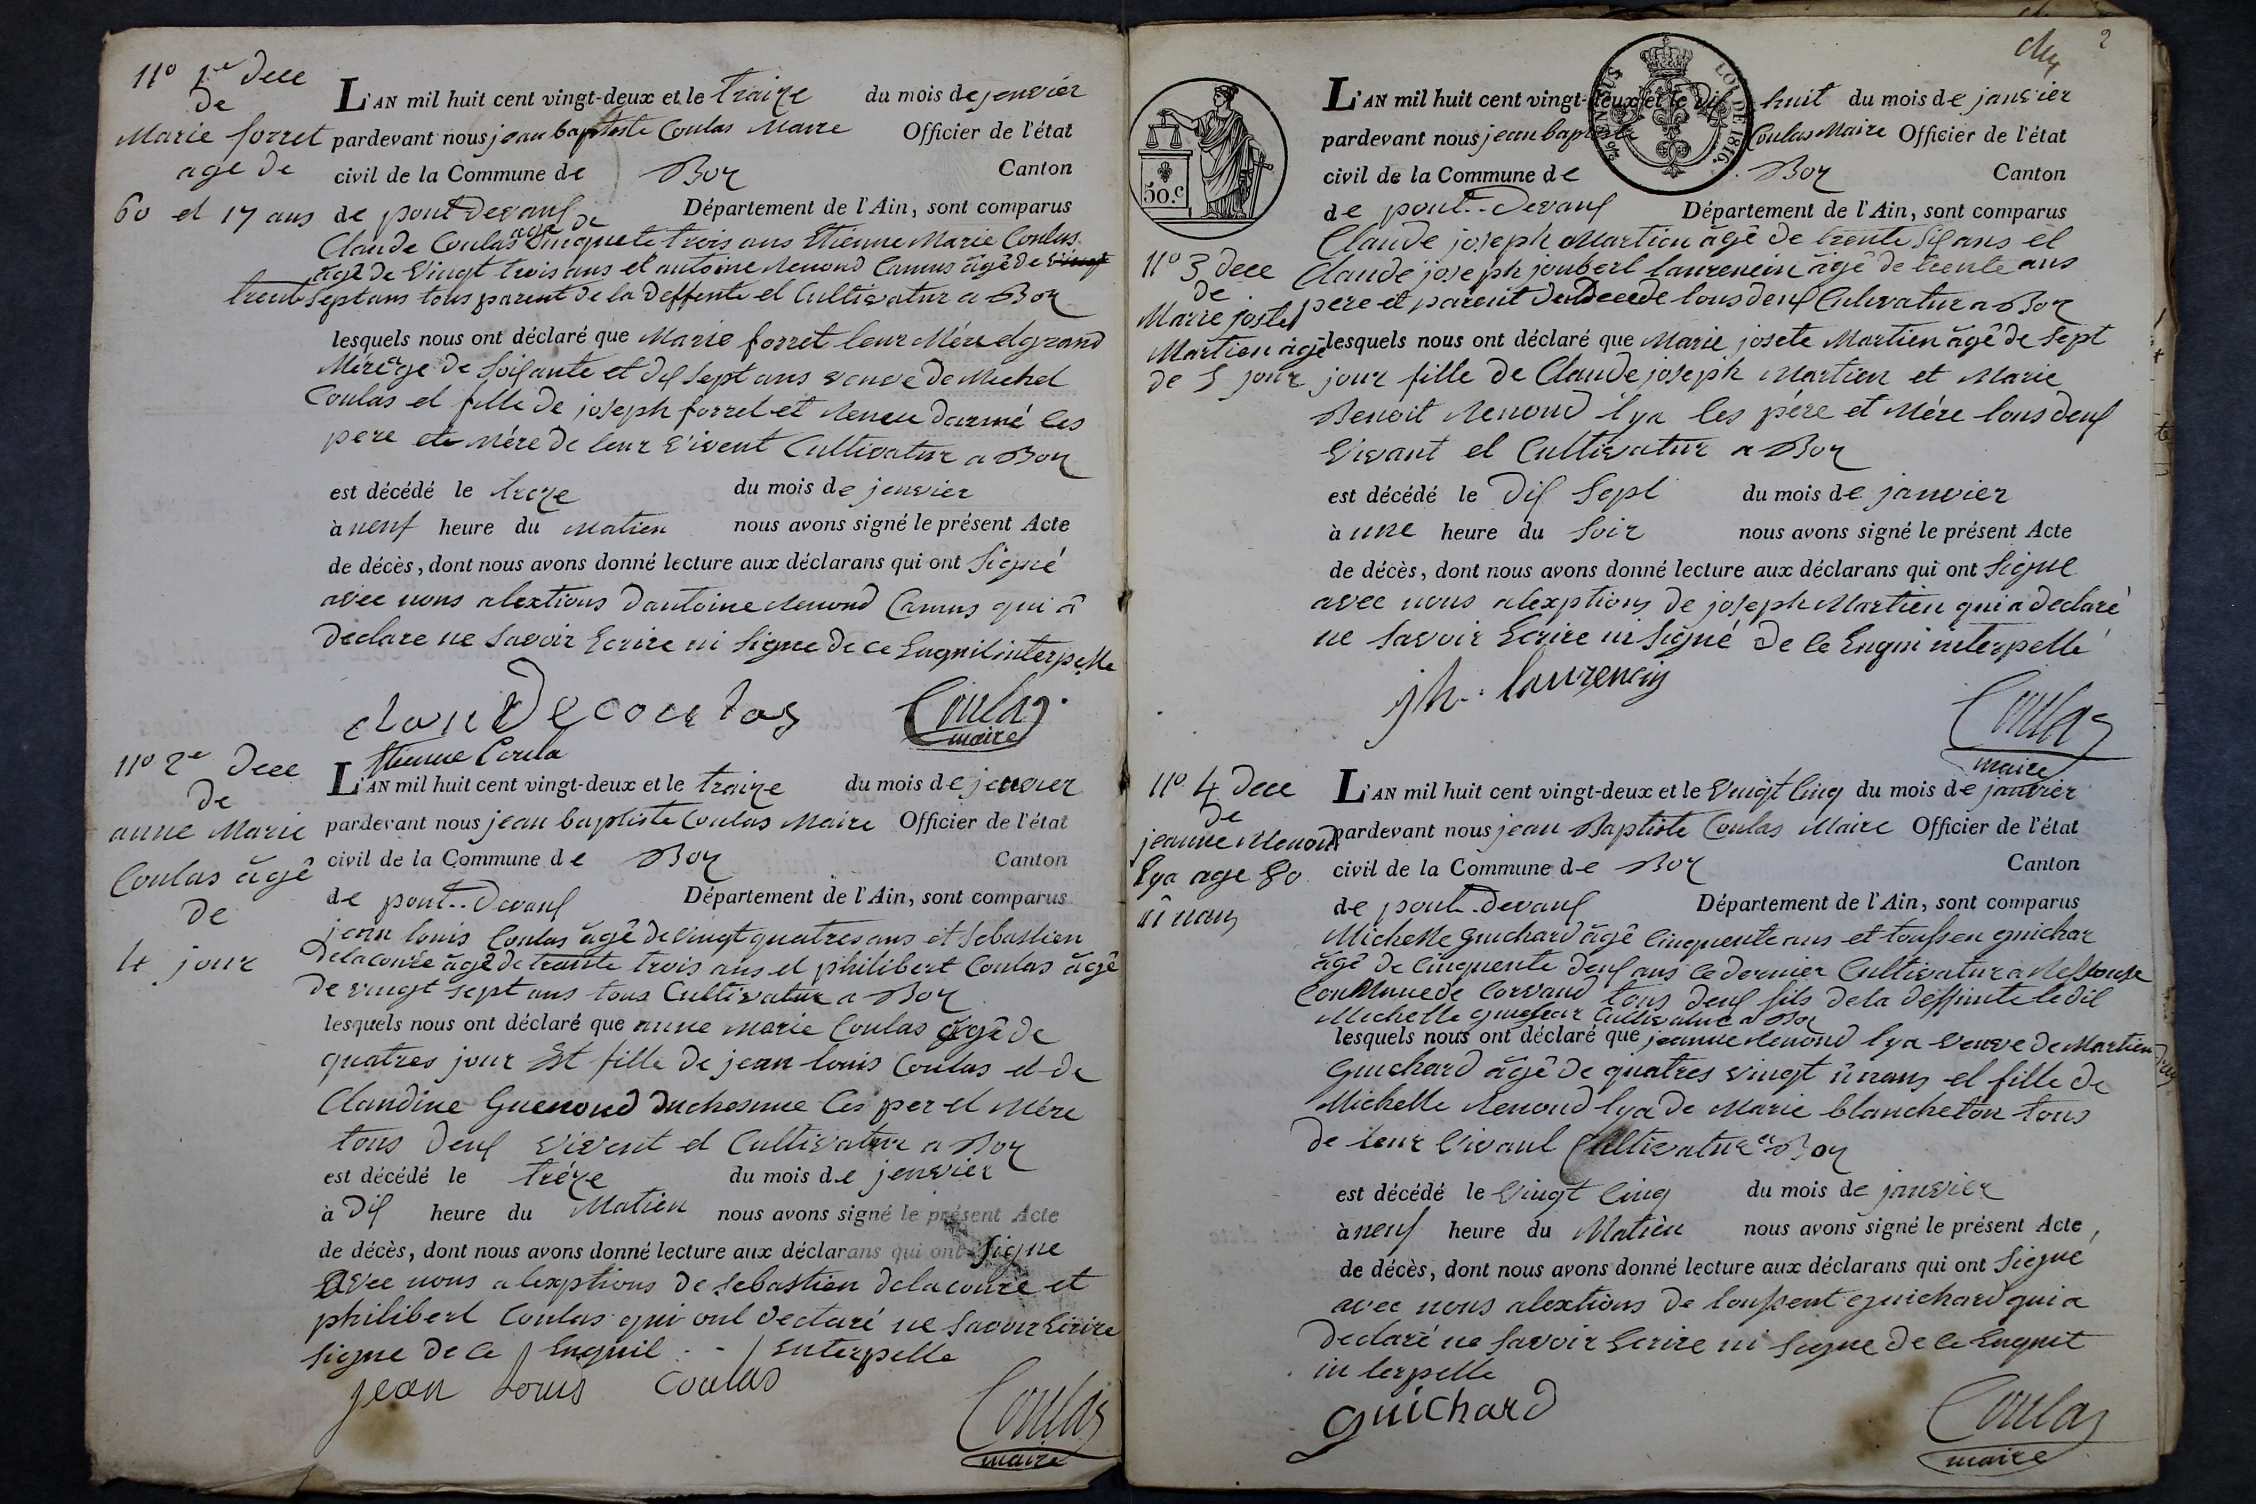 11° 1er Dece
de
Marie forret
age de
60 et 17 ans
L'AN mil huit cent vingt-deux et le traize du mois de jenvier
pardevant nous jean baptiste Coulas Maire Officier de l'état
civil de la Commune de Boz Canton
de pont Devaux Département de l'Ain, sont comparus
Claude Coulas age de Cinquete trois ans Etienne Marie Coulas
âgé de Vingt trois ans et antoine Renoud Camus âgé de vingt
trente Sept ans tous parent de la Deffente et Cultivatur a Boz
lesquels nous ont déclaré que Marie forret leur Mére et grand
Mére age de Soixante et dix Sept ans veuve de Michel
Coulas et fille de joseph forret et Reneu darmé les
pere et Mére de leur vivent Cultivatur a Boz
est décédé le treze du mois de jenvier
à neuf heure du Matien nous avons signé le présent Acte
de décès, dont nous avons donné lecture aux déclarans qui ont Signé
avec nous alextions dantoine Renoud Camus qui â
declare ne Savoir Ecrire ni Signe de ce Enquil interpelle
claude coulas
Coulas
maire
Etienne Coula
11° 2e Dece
de
anne Marie
Coulas âgê
de
4 jour
L'AN mil huit cent vingt-deux et le traize du mois de jenvier
pardevant nous jean baptiste Coulas Maire Officier de l'état
civil de la Commune de Boz Canton
de pont Devaux Département de l'Ain, sont comparus
jean louis Coulas âgê de vingt quatres ans et Sebastien
Delacoure âgê de trante trois ans et philibert Coulas âgê
de vingt sept ans tous Cultivatur a Boz
lesquels nous ont déclaré que anne marie Coulas âgê de
quatres jour Est fille de jean louis Coulas et de
Claudine Guenoud duchesnue les per et Mére
tous deux vivent et Cultivatur a Boz
est décédé le tréze du mois de jenvier
à Dix heure du Matien nous avons signé le présent Acte
de décès, dont nous avons donné lecture aux déclarans qui ont Signe
avec nous alexptions de Sebastien delacoure et
philibert Coulas qui ont declaré ne Savoir Ecrire
signe de ce Enquil Enterpelle
jean Louis Coulas
Coulas
maire
2
TIMBRE
LOI DE 1816.
50.c
L'AN mil huit cent vingt-deux et le dix huit du mois de janvier
pardevant nous jean baptiste Coulas Maire Officier de l'état
civil de la Commune de Boz Canton
de pont Devaux Département de l'Ain, sont comparus
Claude joseph Martien âgê de trente Six ans et
Claude joseph joubert laurencin âgê de trente ans
pere et parent du Decede tous deux Culivatur a Boz
11° 3 Dece
de
Marie josete
Martien âgê
de 5 jour
lesquels nous ont déclaré que Marie josete Martien âgê de Sept
jour fille de Claude joseph Martien et Marie
Benoit Renoud lya les pére et Mére tous deux
vivant et Cultivatur a Boz
est décédé le Dix Sept du mois de janvier
à une heure du Soir nous avons signé le présent Acte
de décès, dont nous avons donné lecture aux déclarans qui ont Signe
avec nous alexptions de joseph Martien qui a declaré
ne Savoir Ecrire ni Signé de ce Enqui interpellé
jh. laurencin
Coulas
maire
11° 4 Dece
de
jeanne Renoud
lya age 80
û nans
L'AN mil huit cent vingt-deux et le Vingt Cinq du mois de janvier
pardevant nous jean Baptiste Coulas Maire Officier de l'état
civil de la Commune de Boz Canton
de pont Devaux Département de l'Ain, sont comparus
Michelle guichard âgê Cinquente ans et toussen guichar
âgê de Cinquente deux ans le dernier Cultivatur a Ressouse
Conmune de Corvand tous deux fils de la deffunte le dit
Michelle guichar Cultivatur a Boz
lesquels nous ont déclaré que jeanne Renoud lya veuve de Martien
Guichard âgê de quatres vingt û nans et fille de
Michelle Renoud lya de Marie blancheton tous
de leur vivant Cultivatur a Boz
est décédé le Vingt Cinq du mois de janvier
à neuf heure du Matien nous avons signé le présent Acte
de décès, dont nous avons donné lecture aux déclarans qui ont Siegne
avec nous alextions de toussent guichard qui a
declaré ne Savoir Ecrire ni Siegne de ce Enquit
in terpelle
guichard
Coulas
maire